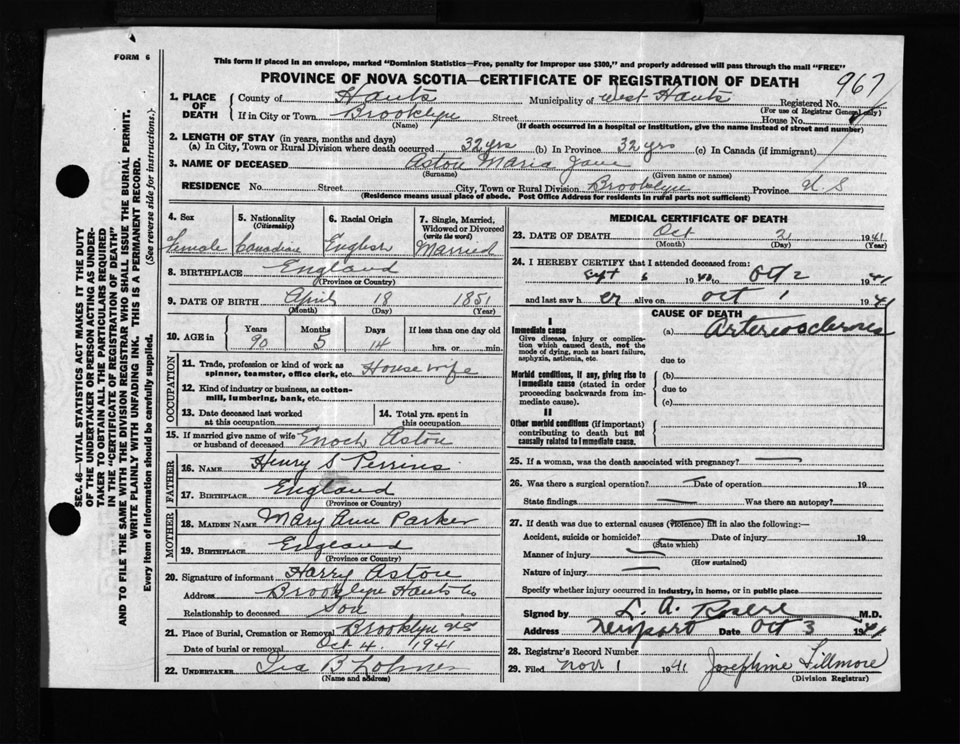 FORM 6
This form if placed in an envelope, marked "Dominion Statistics—Free, penalty for improper use $300," and properly addressed will pass through the mail "FREE"
PROVINCE OF NOVA SCOTIA—CERTIFICATE OF REGISTRATION OF DEATH
967
1. PLACE OF DEATH
County of Hants Municipality of West Hants Registered No.
(For use of Registrar General only)
If in City or Town Brooklyn Street House No.
(Name) (If death occurred in a hospital or institution, give the name instead of street and number)
2. LENGTH OF STAY (in years, months and days)
(a) In City, Town or Rural Division where death occurred 32 yrs (b) In Province 32 yrs (c) In Canada (if immigrant)
3. NAME OF DECEASED Aston Maria Jane
(Surname) (Given name or names)
RESIDENCE No. Street City, Town or Rural Division Brooklyn Province N S
(Residence means usual place of abode. Post Office Address for residents in rural parts not sufficient)
4. Sex
Female
5. Nationality
(Citizenship)
Canadian
6. Racial Origin
English
7. Single, Married, Widowed or Divorced
(write the word)
Married
8. BIRTHPLACE England
(Province or Country)
9. DATE OF BIRTH April 18 1851
(Month) (Day) (Year)
10. AGE in
Years Months Days If less than one day old
90 5 14 hrs. or min.
OCCUPATION
11. Trade, profession or kind of work as
spinner, teamster, office clerk, etc. House wife
12. Kind of industry or business, as cotton-
mill, lumbering, bank, etc.
13. Date deceased last worked
at this occupation
14. Total yrs. spent in
this occupation
15. If married give name of wife
or husband of deceased Enoch Aston
FATHER
16. NAME Henry S Perrins
17. BIRTHPLACE England
(Province or Country)
MOTHER
18. MAIDEN NAME Mary Ann Parker
19. BIRTHPLACE England
(Province or Country)
20. Signature of informant Harry Aston
Address Brooklyn Hants Co
Relationship to deceased Son
21. Place of Burial, Cremation or Removal Brooklyn N.S
Date of burial or removal Oct 4. 1941
22. UNDERTAKER Ira B
(Name and address)
MEDICAL CERTIFICATE OF DEATH
23. DATE OF DEATH Oct 2 1941
(Month) (Day) (Year)
24. I HEREBY CERTIFY that I attended deceased from:
Sept 6 1940 to Oct 2 1941
and last saw h er alive on Oct 1 1941
CAUSE OF DEATH
I
Immediate cause (a) Arteriosclerosis
Give disease, injury or complica-
tion which caused death, not the
mode of dying, such as heart failure,
asphyxia, asthenia, etc.
due to
Morbid conditions, if any, giving rise to (b)
immediate cause (stated in order due to
proceeding backwards from im-
mediate cause). (c)
II
Other morbid conditions (if important)
contributing to death but not
causally related to immediate cause.
25. If a woman, was the death associated with pregnancy? —
26. Was there a surgical operation? — Date of operation 19
State findings — Was there an autopsy?
27. If death was due to external causes (violence) fill in also the following:—
Accident, suicide or homicide? Date of injury 19
(State which)
Manner of injury —
(How sustained)
Nature of injury —
Specify whether injury occurred in industry, in home, or in public place
Signed by L. A. M.D.
Address Newport Date Oct 3 1941
28. Registrar's Record Number
29. Filed Nov 1 1941 Josephine Fillmore
(Division Registrar)
SEC. 46—VITAL STATISTICS ACT MAKES IT THE DUTY
OF THE UNDERTAKER OR PERSON ACTING AS UNDER-
TAKER TO OBTAIN ALL THE PARTICULARS REQUIRED
IN THE "CERTIFICATE OF REGISTRATION OF DEATH"
AND TO FILE THE SAME WITH THE DIVISION REGISTRAR WHO SHALL ISSUE THE BURIAL PERMIT.
WRITE PLAINLY WITH UNFADING INK. THIS IS A PERMANENT RECORD.
Every item of information should be carefully supplied. (See reverse side for instructions.)